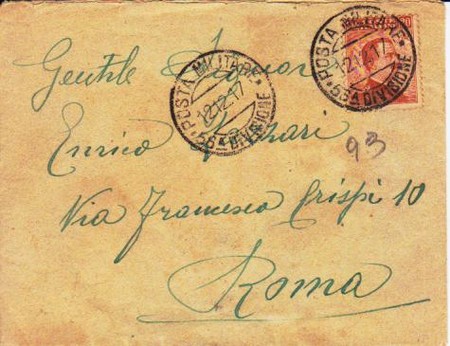 Gentile Signor
Enrico
Via Francesco Crispi 10
Roma
93
POSTA MILITARE
12.12.17
56A DIVISIONE
POSTA MILITARE
12.12.17
56A DIVISIONE